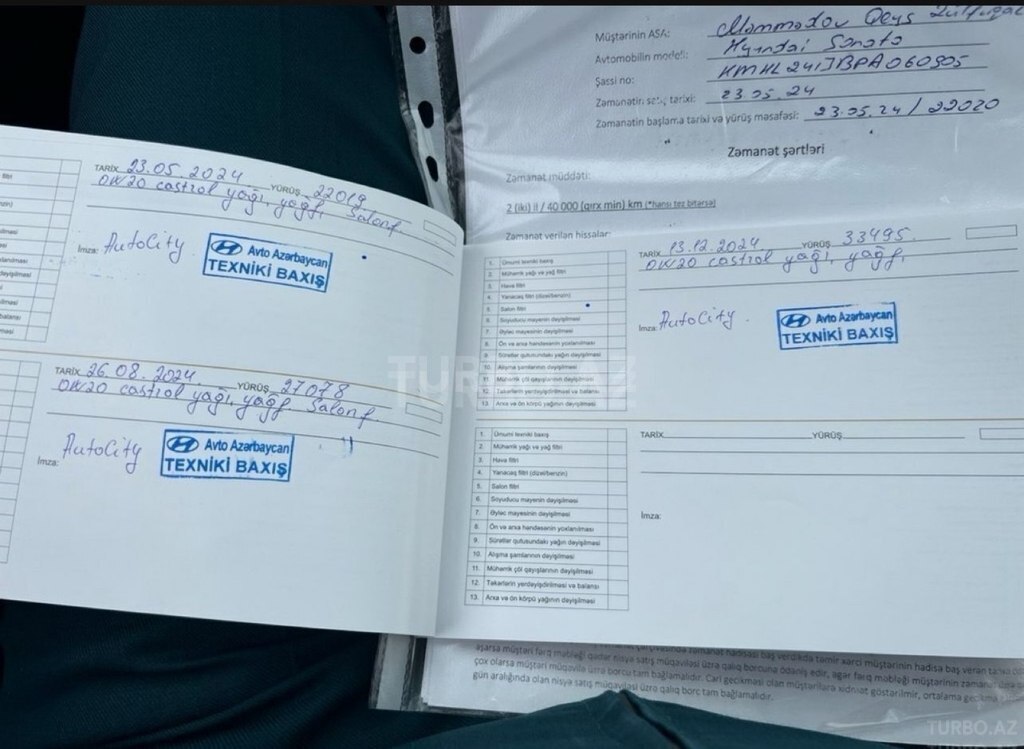 Müştərinin ASA: Məmmədov Qeys
Avtomobilin modeli: Hyundai Sonata
Şassi no: KMHL241JBPA060905
Zəmanətin satış tarixi: 23.05.24
Zəmanətin başlama tarixi və yürüş məsafəsi: 23.05.24 / 22020
Zəmanət şərtləri
Zəmanət müddəti:
2 (iki) il / 40 000 (qırx min) km (*hansı tez bitərsə)
Zəmanət verilən hissələr:
TARİX 23.05.2024 YÜRÜŞ 22019
0W20 castrol yağı, yağf, Salonf
İmza: AutoCity
Avto Azərbaycan
TEXNİKİ BAXIŞ
TARİX 26.08.2024 YÜRÜŞ 27078
0W20 castrol yağı, yağf Salonf
İmza: AutoCity
Avto Azərbaycan
TEXNİKİ BAXIŞ
1. Ümumi texniki baxış
2. Mühərrik yağı və yağ filtri
3. Hava filtri
4. Yanacaq filtri (dizel/benzin)
5. Salon filtri
6. Soyuducu mayenin dəyişilməsi
7. Əyləc mayesinin dəyişilməsi
8. Ön və arxa həndəsənin yoxlanılması
9. Sürətlər qutusundakı yağın dəyişilməsi
10. Alışma şamlarının dəyişilməsi
11. Mühərrik çöl qayışlarının dəyişilməsi
12. Təkərlərin yerdəyişdirilməsi və balansı
13. Arxa və ön körpü yağının dəyişilməsi
TARİX 13.12.2024 YÜRÜŞ 33495
0W20 castrol yağı, yağf,
İmza: AutoCity
Avto Azərbaycan
TEXNİKİ BAXIŞ
1. Ümumi texniki baxış
2. Mühərrik yağı və yağ filtri
3. Hava filtri
4. Yanacaq filtri (dizel/benzin)
5. Salon filtri
6. Soyuducu mayenin dəyişilməsi
7. Əyləc mayesinin dəyişilməsi
8. Ön və arxa həndəsənin yoxlanılması
9. Sürətlər qutusundakı yağın dəyişilməsi
10. Alışma şamlarının dəyişilməsi
11. Mühərrik çöl qayışlarının dəyişilməsi
12. Təkərlərin yerdəyişdirilməsi və balansı
13. Arxa və ön körpü yağının dəyişilməsi
TARİX YÜRÜŞ
İmza:
aşarsa müştəri fərq məbləği qədər nisyə satış müqaviləsi üzrə qalıq borcuna ödəniş edir, əgər fərq məbləği müştərinin
çox olarsa müştəri müqavilə üzrə borcu tam bağlamalıdır. Cari gecikməsi olan müştərilərə xidmət göstərilmir, ortalama gecikmə
gün aralığında olan nisyə satış müqaviləsi üzrə qalıq borc tam bağlamalıdır.
TURBO.AZ
TURBO.AZ